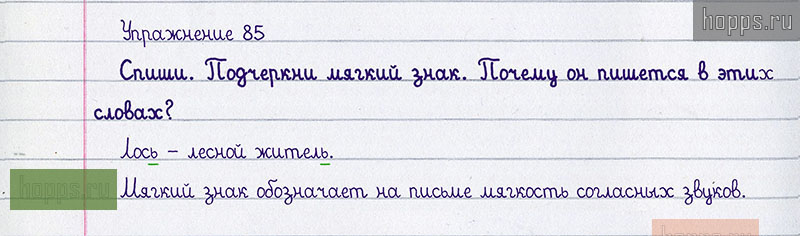 hopps.ru
Упражнение 85
Спиши. Подчеркни мягкий знак. Почему он пишется в этих
словах?
Лось – лесной житель.
hopps.ru
Мягкий знак обозначает на письме мягкость согласных звуков.
hopps.ru